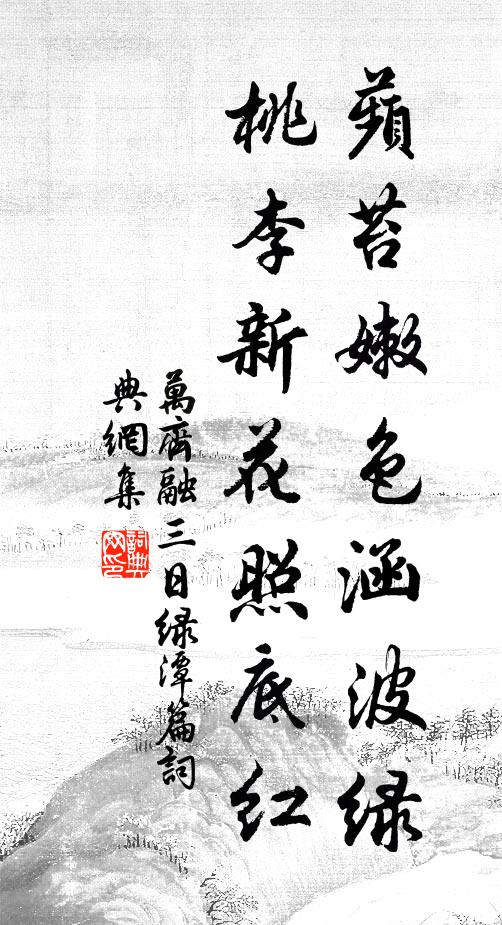 蘋苔嫩色涵波绿
桃李新花照底红
萬齊融三日绿潭篇詞
典網集
詞典
网印